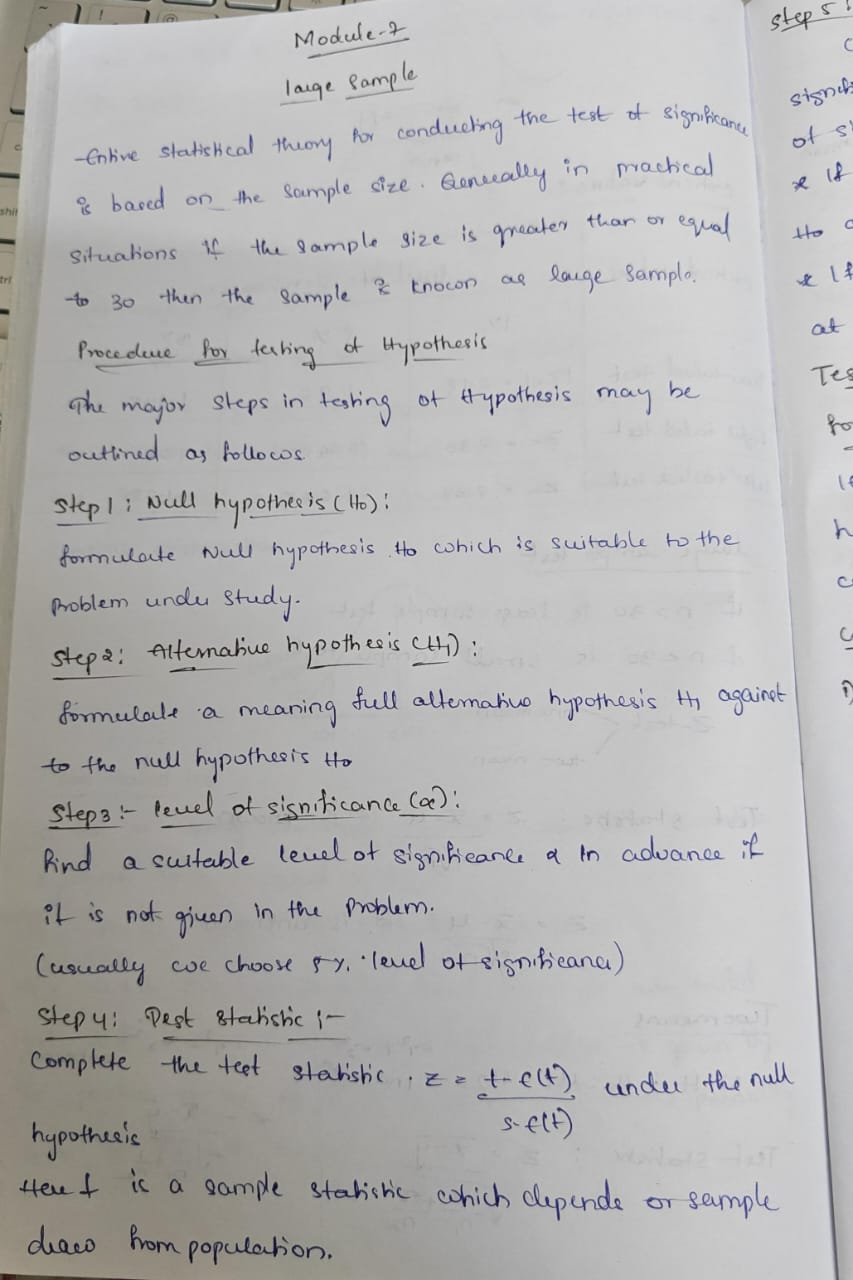 Module-7
large Sample
-Entire statistical theory for conducting the test of significance
is based on the sample size. Generally in practical
situations if the sample size is greater than or equal
to 30 then the sample is known as large sample.
Procedure for testing of Hypothesis
The major steps in testing of Hypothesis may be
outlined as follows
Step 1 : Null hypothesis (H0) :
formulate Null hypothesis H0 which is suitable to the
problem under study.
Step 2: Alternative hypothesis (H1) :
formulate a meaning full alternative hypothesis H1 against
to the null hypothesis H0
Step3 :- level of significance (α) :
find a suitable level of significance α in advance if
it is not given in the problem.
(usually we choose 5% level of significance)
Step 4: Test statistic :-
Complete the test statistic . z = t - E(t) / S.E(t) under the null
hypothesis
Here t is a sample statistic which depends or sample
draw from population.
Step 5 :
of
* If
H0
* If
at